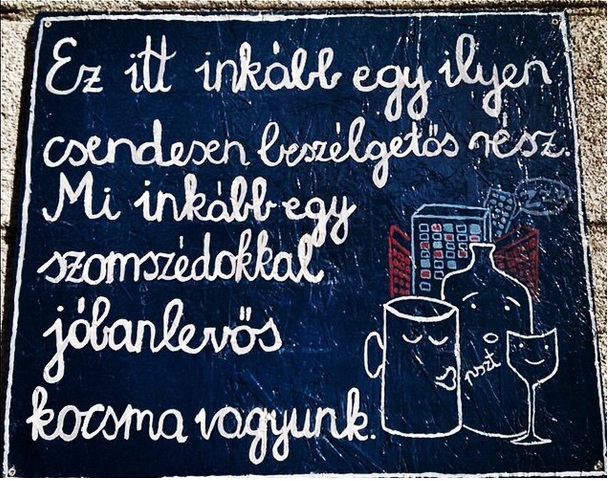 Ez itt inkább egy ilyen
csendesen beszélgetős rész.
Mi inkább egy
szomszédokkal
jóbanlevős
kocsma vagyunk.
pszt